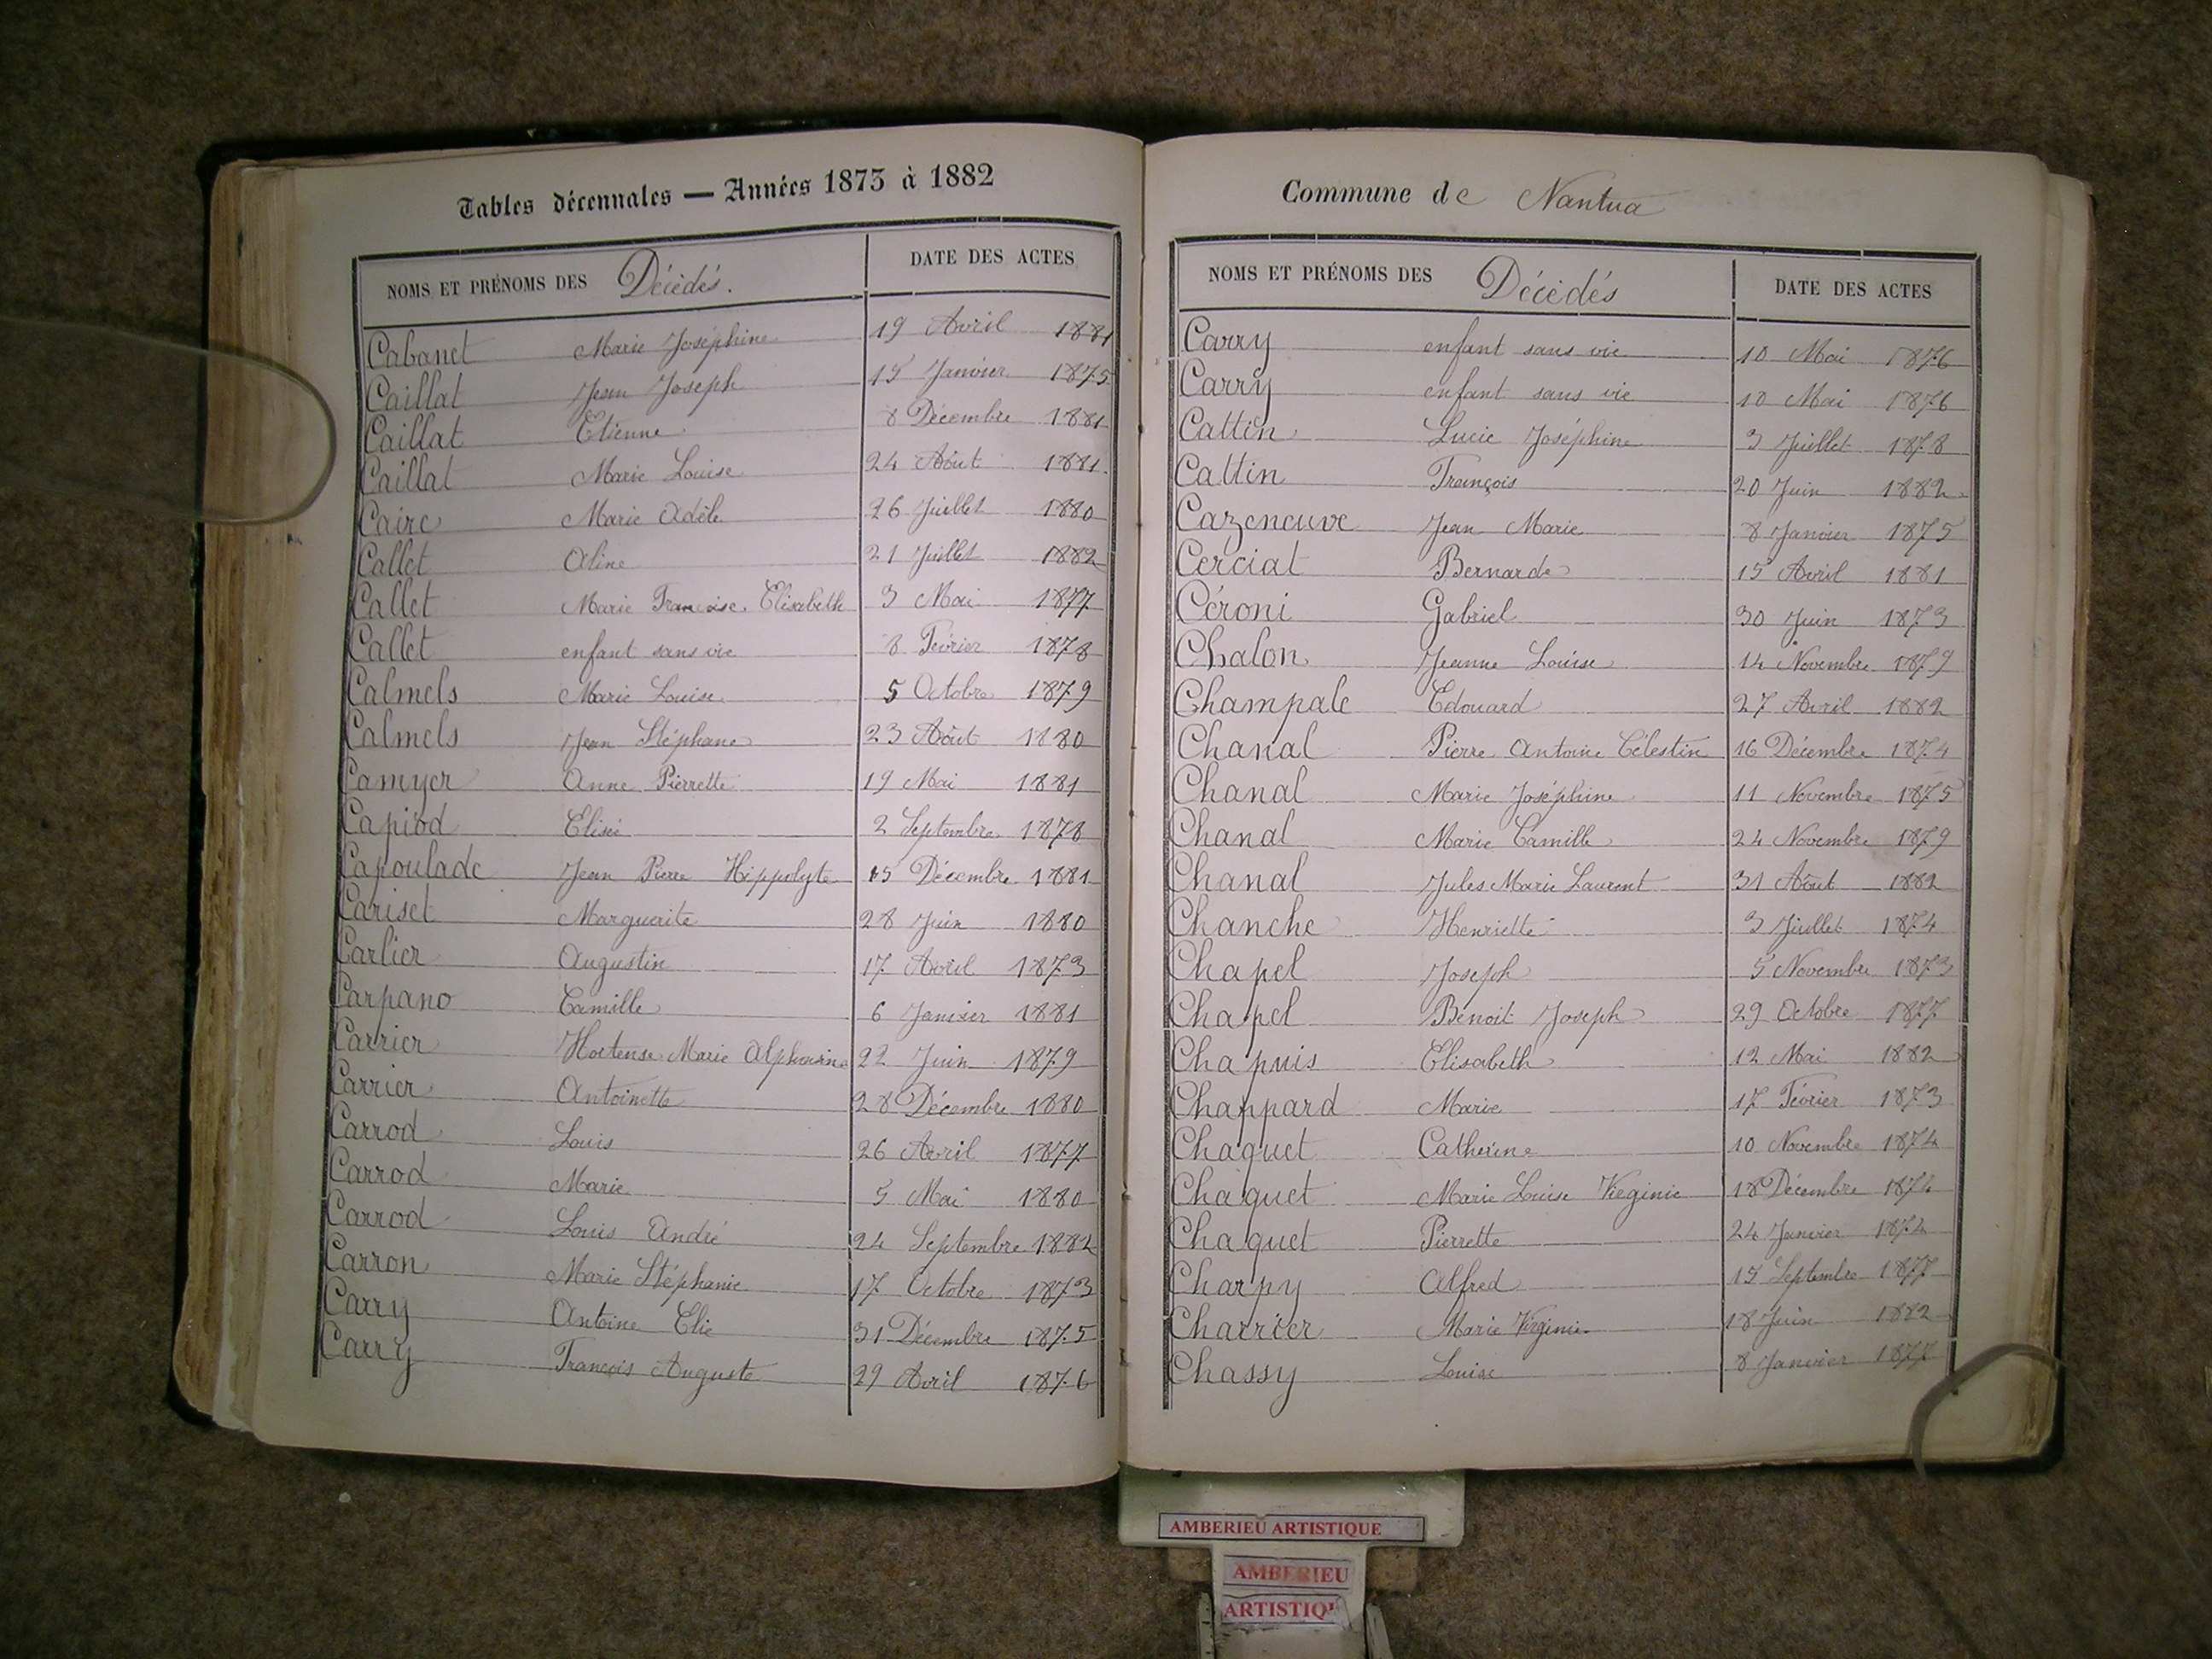 Tables décennales — Années 1873 à 1882
NOMS ET PRÉNOMS DES Décédés. DATE DES ACTES
Cabanet Marie Joséphine 19 Avril 1881
Caillat Jean Joseph 15 Janvier 1875
Caillat Etienne 8 Décembre 1881
Caillat Marie Louise 24 Août 1881
Caire Marie Adèle 26 Juillet 1880
Callet Aline 21 Juillet 1882
Callet Marie Francoise Elisabeth 3 Mai 1877
Callet enfant sans vie 8 Février 1878
Calmels Marie Louise 5 Octobre 1879
Calmels Jean Stéphane 23 Août 1880
Camyer Anne Pierrette 19 Mai 1881
Capiod Elisée 2 Septembre 1878
Capoulade Jean Pierre Hippolyte 15 Décembre 1881
Cariset Marguerite 28 Juin 1880
Carlier Augustin 17 Avril 1873
Carpano Camille 6 Janvier 1881
Carrier Hortense Marie Alphonsine 22 Juin 1879
Carrier Antoinette 28 Décembre 1880
Carrod Louis 26 Avril 1877
Carrod Marie 5 Mai 1880
Carrod Louis André 24 Septembre 1882
Carron Marie Stéphanie 17 Octobre 1873
Carry Antoine Elie 31 Décembre 1875
Carry François Auguste 29 Avril 1876
Commune de Nantua
NOMS ET PRÉNOMS DES Décédés DATE DES ACTES
Carry enfant sans vie 10 Mai 1876
Carry enfant sans vie 10 Mai 1876
Cattin Lucie Joséphine 3 Juillet 1878
Cattin François 20 Juin 1882
Cazeneuve Jean Marie 8 Janvier 1875
Cerciat Bernarde 15 Avril 1881
Céroni Gabriel 30 Juin 1873
Chalon Jeanne Louise 14 Novembre 1879
Champale Edouard 27 Avril 1882
Chanal Pierre Antoine Célestin 16 Décembre 1874
Chanal Marie Joséphine 11 Novembre 1875
Chanal Marie Camille 24 Novembre 1879
Chanal Jules Marie Laurent 31 Août 1882
Chanche Henriette 3 Juillet 1874
Chapel Joseph 5 Novembre 1873
Chapel Benoit Joseph 29 Octobre 1877
Chapuis Elisabeth 12 Mai 1882
Chappard Marie 17 Février 1873
Chaquet Catherine 10 Novembre 1874
Chaquet Marie Louise Virginie 18 Décembre 1874
Chaquet Pierrette 24 Janvier 1874
Charpy Alfred 15 Septembre 1877
Charrier Marie Virginie 18 Juin 1882
Chassy Louise 8 Janvier 1877
AMBERIEU ARTISTIQUE
AMBERIEU
ARTISTIQU